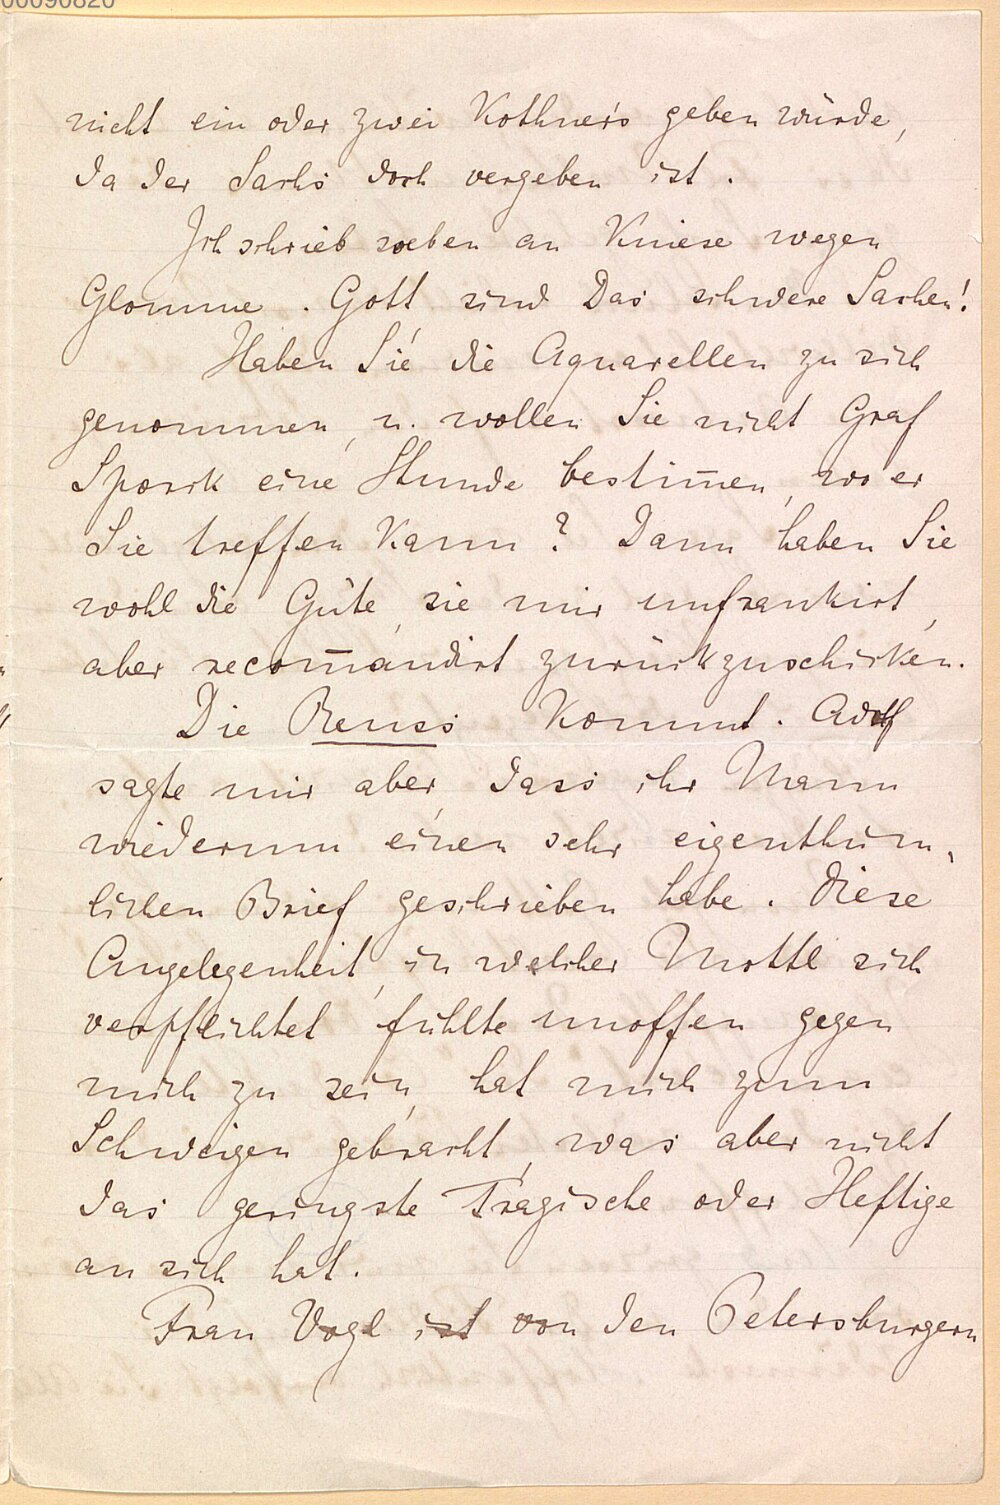 00090820
nicht ein oder zwei Kothner's geben würde,
da der Sachs doch vergeben ist.
Ich schrieb soeben an Kniese wegen
Glomme. Gott sind Das schwere Sachen!
Haben Sie die Aquarellen zu sich
genommen, u. wollen Sie nicht Graf
Sporck eine Stunde bestim̅en, wo er
Sie treffen kann? Dann haben Sie
wohl die Güte, sie mir unfrankirt,
aber recom̅andirt zurückzuschicken.
Die Reuss kommt. Adolf
sagte mir aber, dass ihr Mann
wiederum einen sehr eigenthüm-
lichen Brief geschrieben habe. Diese
Angelegenheit, in welcher Mottl sich
verpflichtet fühlte unoffen gegen
mich zu sein, hat mich zum
Schweigen gebracht, was aber nicht
das geringste Tragische oder Heftige
an sich hat.
Frau Vogl ist von den Petersburgern